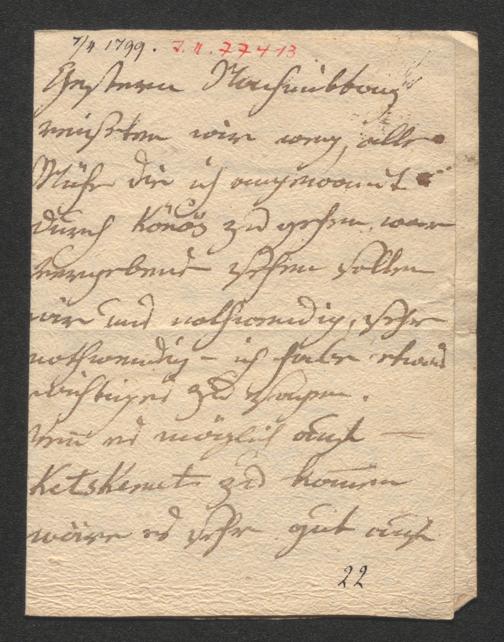 7/4 1799. J. N. 77413
Gestern Nachmittag
reißten wir weg, alle
Mühe die ich angewant
durch Körös zu gehen war
vergebens sehen sollen
wir uns nothwendig, sehr
nothwendig – ich habe etwas
wichtiges zu sagen.
wen es möglich auf –
Ketskemet zu komen
wäre es sehr gut auf
22